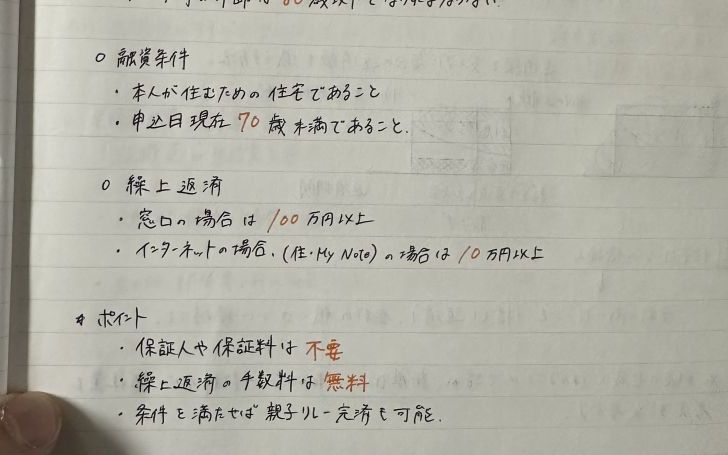 ○ 融資条件
・本人が住むための住宅であること
・申込日現在70歳未満であること.
○ 繰上返済
・窓口の場合は100万円以上
・インターネットの場合、(住・My Note)の場合は10万円以上
* ポイント
・保証人や保証料は不要
・繰上返済の手数料は無料
・条件を満たせば親子リレー完済も可能.